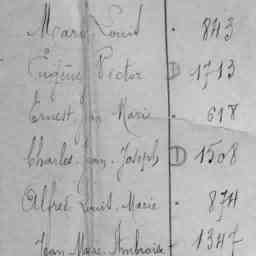 Mary Louis . 843
Eugène Victor D 1713
Ernest Jean Marie . 618
Charles Jean Joseph D 1508
Alfred Louis Marie . 874
Jean Marie Ambroise 1347